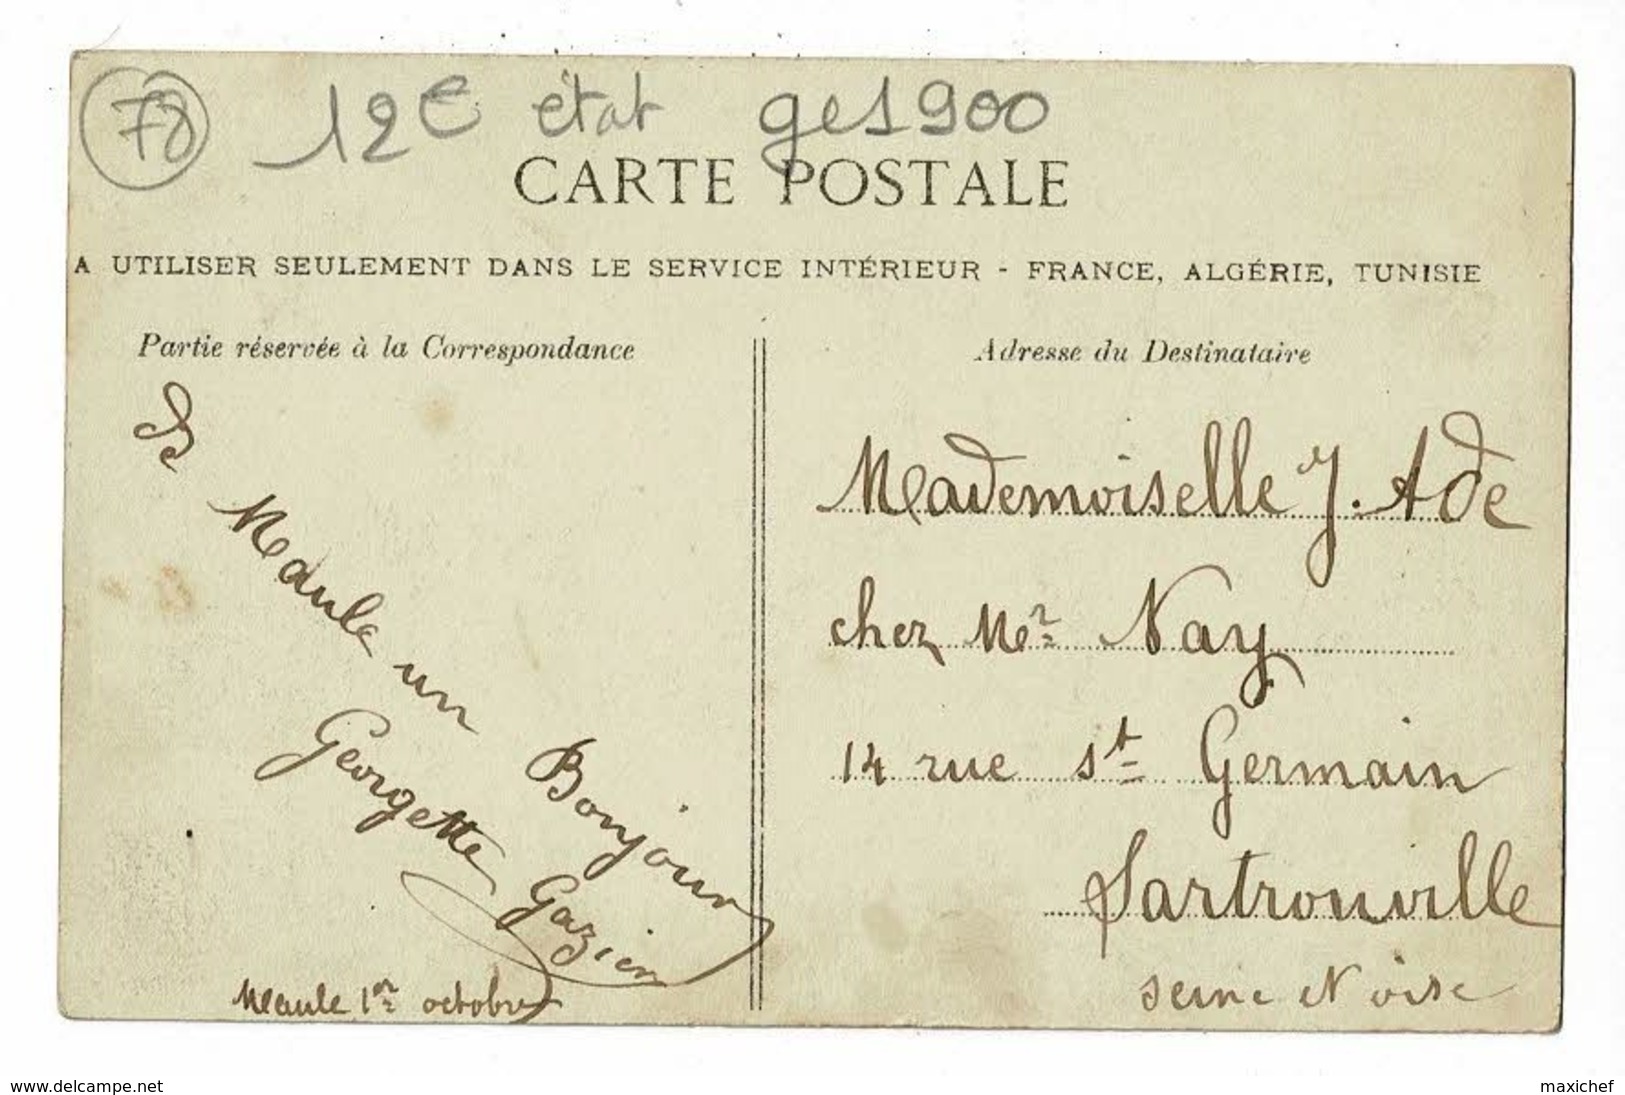 78 12e état ge1900
CARTE POSTALE
A UTILISER SEULEMENT DANS LE SERVICE INTÉRIEUR - FRANCE, ALGÉRIE, TUNISIE
Partie réservée à la Correspondance
De Maule un Bonjour
Georgette Gazien
Maule 1er octobre
Adresse du Destinataire
Mademoiselle J. Ade
chez Mr Nay
14 rue St Germain
Sartrouville
Seine et oise
www.delcampe.net
maxichef